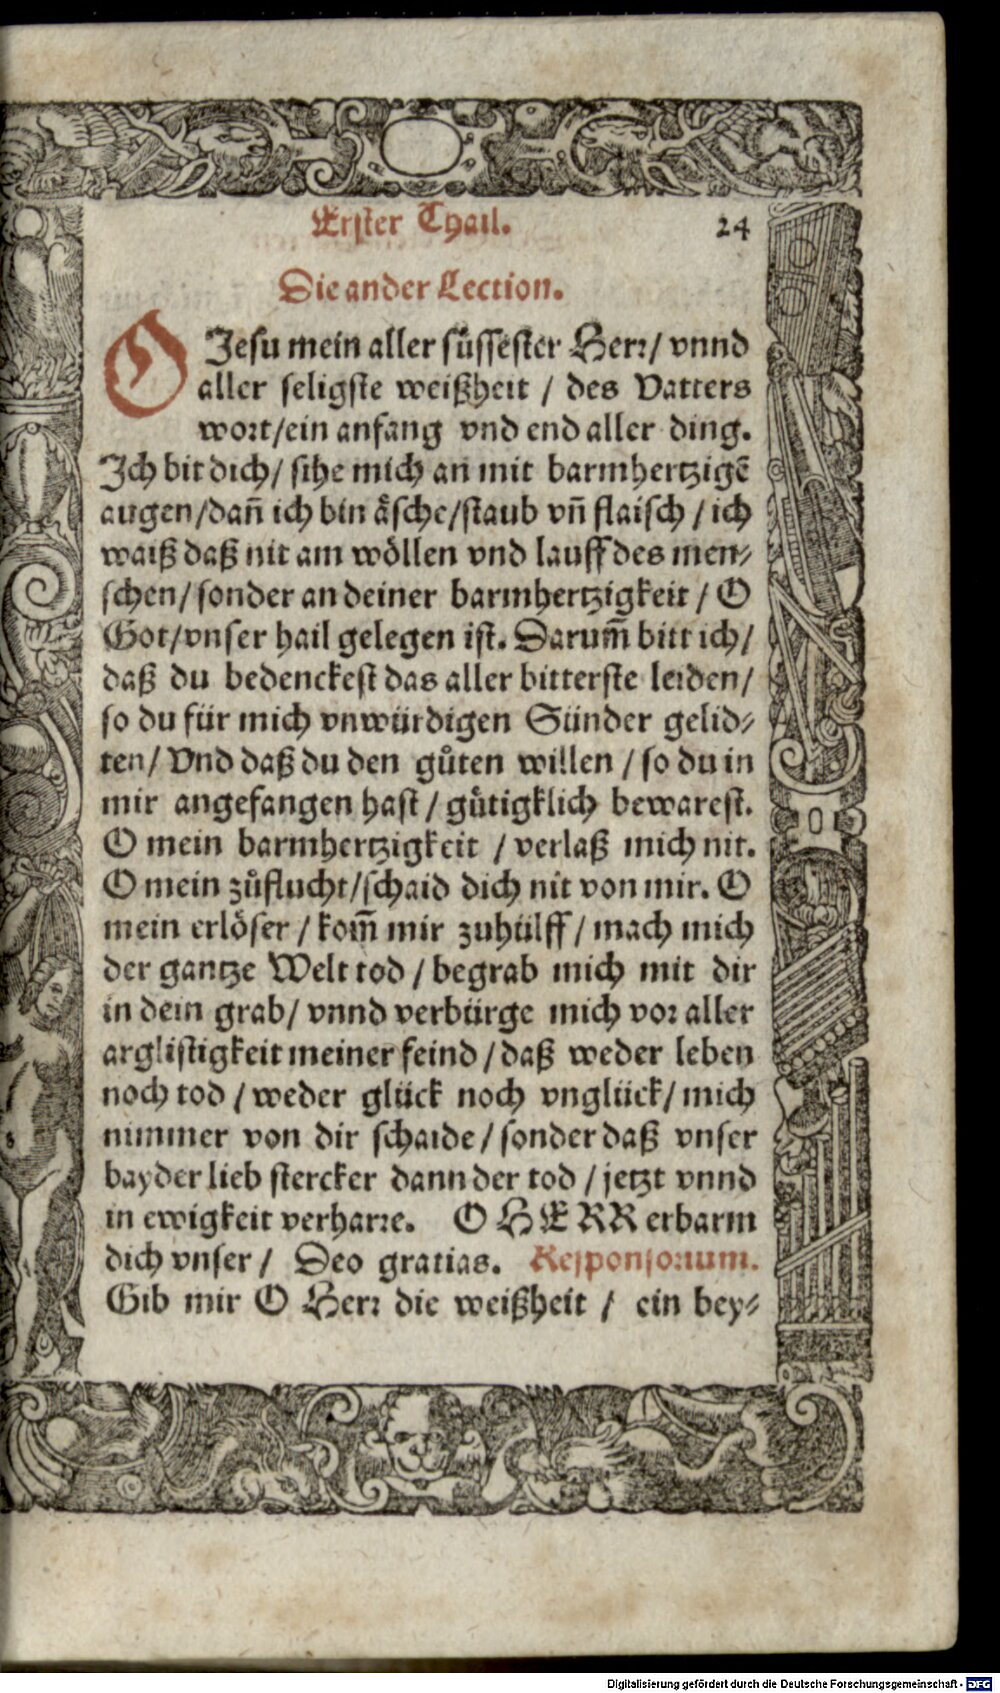 Erster Thail. 24
Die ander Lection.
O Jesu mein aller süssester Herr/ vnnd
aller seligste weißheit / des Vatters
wort/ein anfang vnd end aller ding.
Ich bit dich/ sihe mich an mit barmhertzigẽ
augen/dañ ich bin äsche/staub vñ flaisch / ich
waiß daß nit am wöllen vnd lauff des men⸗
schen/ sonder an deiner barmhertzigkeit / O
Got/vnser hail gelegen ist. Darum̃ bitt ich/
daß du bedenckest das aller bitterste leiden/
so du für mich vnwürdigen Sünder gelid⸗
ten/ Vnd daß du den gůten willen / so du in
mir angefangen hast / gütigklich bewarest.
O mein barmhertzigkeit / verlaß mich nit.
O mein zůflucht/schaid dich nit von mir. O
mein erlöser / kom̃ mir zuhülff / mach mich
der gantze Welt tod / begrab mich mit dir
in dein grab/ vnnd verbürge mich vor aller
arglistigkeit meiner feind / daß weder leben
noch tod / weder glück noch vnglück/ mich
nimmer von dir schaide / sonder daß vnser
bayder lieb stercker dann der tod / jetzt vnnd
in ewigkeit verharre. O HERR erbarm
dich vnser / Deo gratias. Responsorium.
Gib mir O Herr die weißheit / ein bey⸗
Digitalisierung gefördert durch die Deutsche Forschungsgemeinschaft - DFG